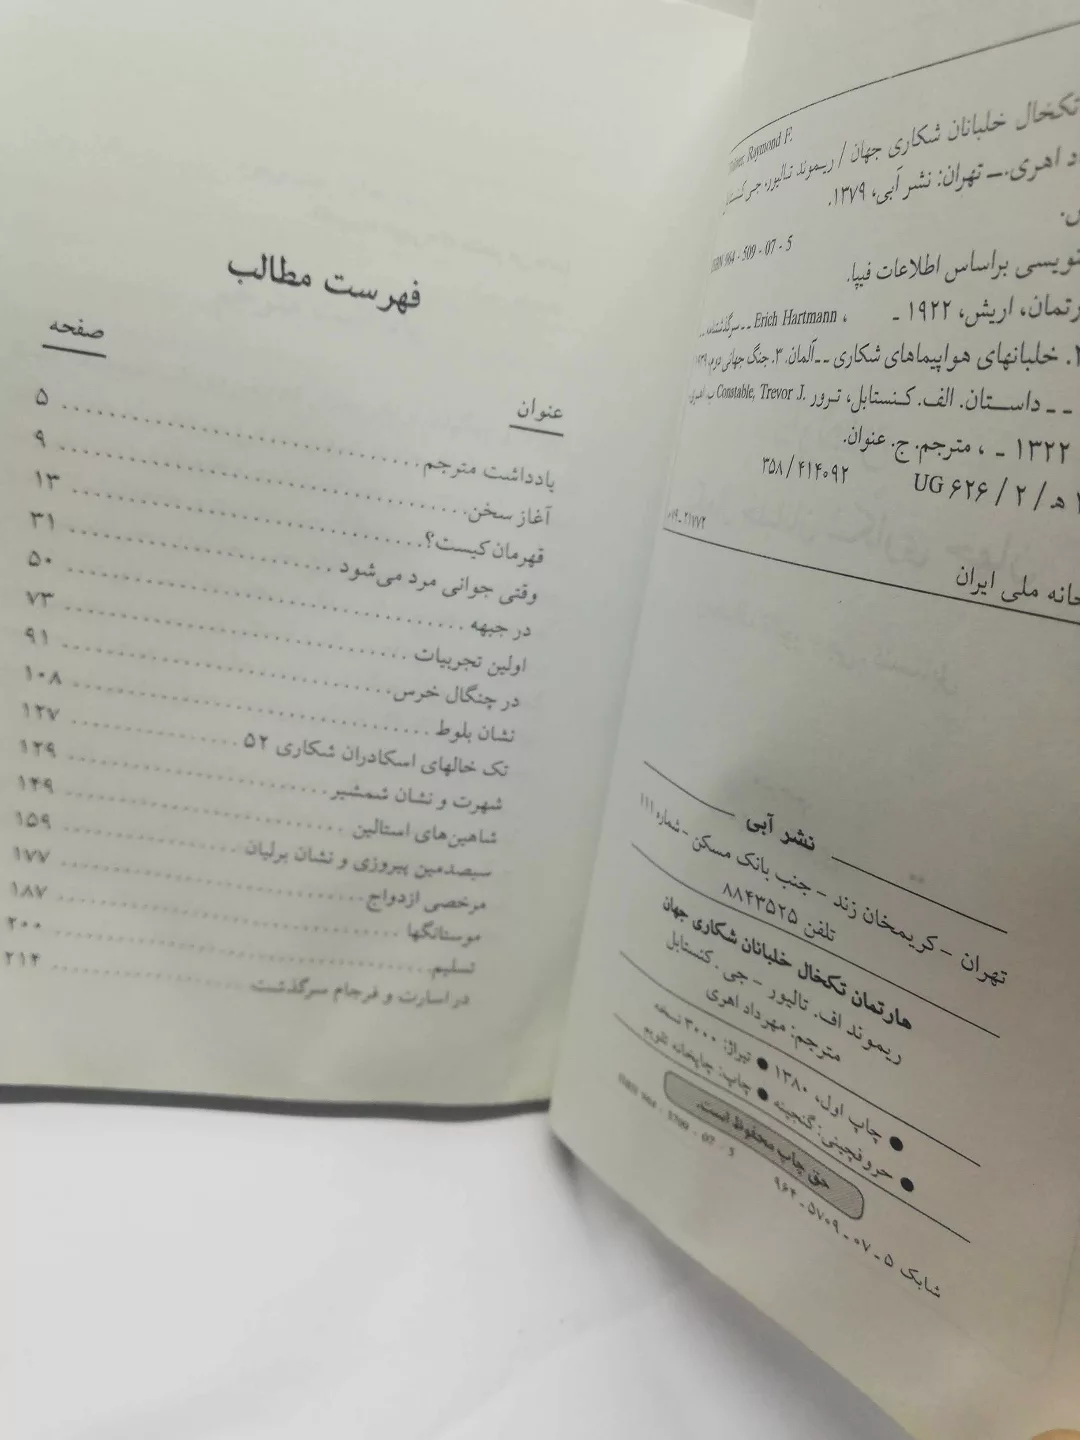 تکخال خلبانان شکاری جهان / ریموند تالیور، جی کنستابل
د اهری.ـــ تهران: نشر آبی، ۱۳۷۹.
Raymond F.
ISBN 964 - 509 - 07 - 5
نویسی براساس اطلاعات فیپا.
رتمان، اریش، ۱۹۲۲ ـ ، Erich Hartmann ــ سرگذشتنامه
۲. خلبانهای هواپیماهای شکاری ــ آلمان. ۳. جنگ جهانی دوم، ۱۹۳۹
ــ داستان. الف. کنستابل، ترور Constable, Trevor J. ب.اهری،
۱۳۲۲ ـ ، مترجم. ج. عنوان.
ه‍ / ۲ / ۶۲۶ UG ۳۵۸/۴۱۴۰۹۲
۲۱۷۷۲ـ۷۹م
خانه ملی ایران
نشر آبی
تهران - کریمخان زند - جنب بانک مسکن - شماره ۱۱۱
تلفن ۸۸۴۳۵۲۵
هارتمان تکخال خلبانان شکاری جهان
ریموند اف. تالیور - جی. کنستابل
مترجم: مهرداد اهری
● چاپ اول، ۱۳۸۰ ● تیراژ: ۳۰۰۰ نسخه
● حروفچینی: گنجینه ● چاپ: چاپخانه تقویم
حق چاپ محفوظ است.
ISBN 964 - 5709 - 07 - 5
شابک ۵ ـ ۰۷ ـ ۵۷۰۹ ـ ۹۶۴
فهرست مطالب
عنوان صفحه
یادداشت مترجم ۵
آغاز سخن ۹
قهرمان کیست؟ ۱۳
وقتی جوانی مرد می‌شود ۳۱
در جبهه ۵۰
اولین تجربیات ۷۳
در چنگال خرس ۹۱
نشان بلوط ۱۰۸
تک خالهای اسکادران شکاری ۵۲ ۱۲۷
شهرت و نشان شمشیر ۱۲۹
شاهین‌های استالین ۱۴۹
سیصدمین پیروزی و نشان برلیان ۱۵۹
مرخصی ازدواج ۱۷۷
موستانگها ۱۸۷
تسلیم ۲۰۰
در اسارت و فرجام سرگذشت ۲۱۴